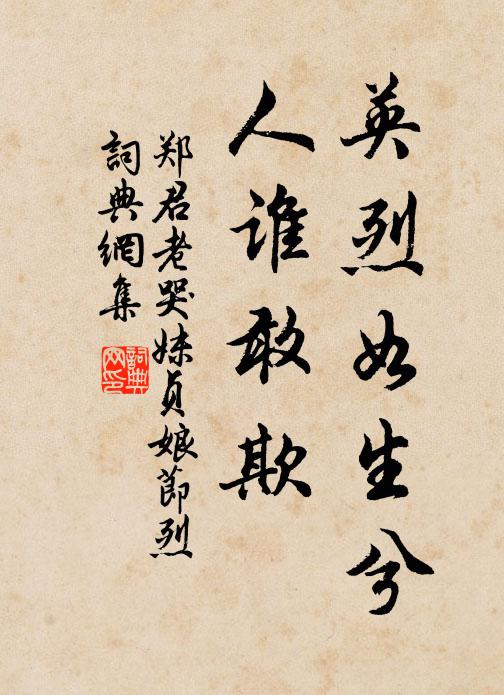 英烈如生兮
人谁敢欺
郑君老哭妹贞娘節烈
詞典網集
詞典
网印